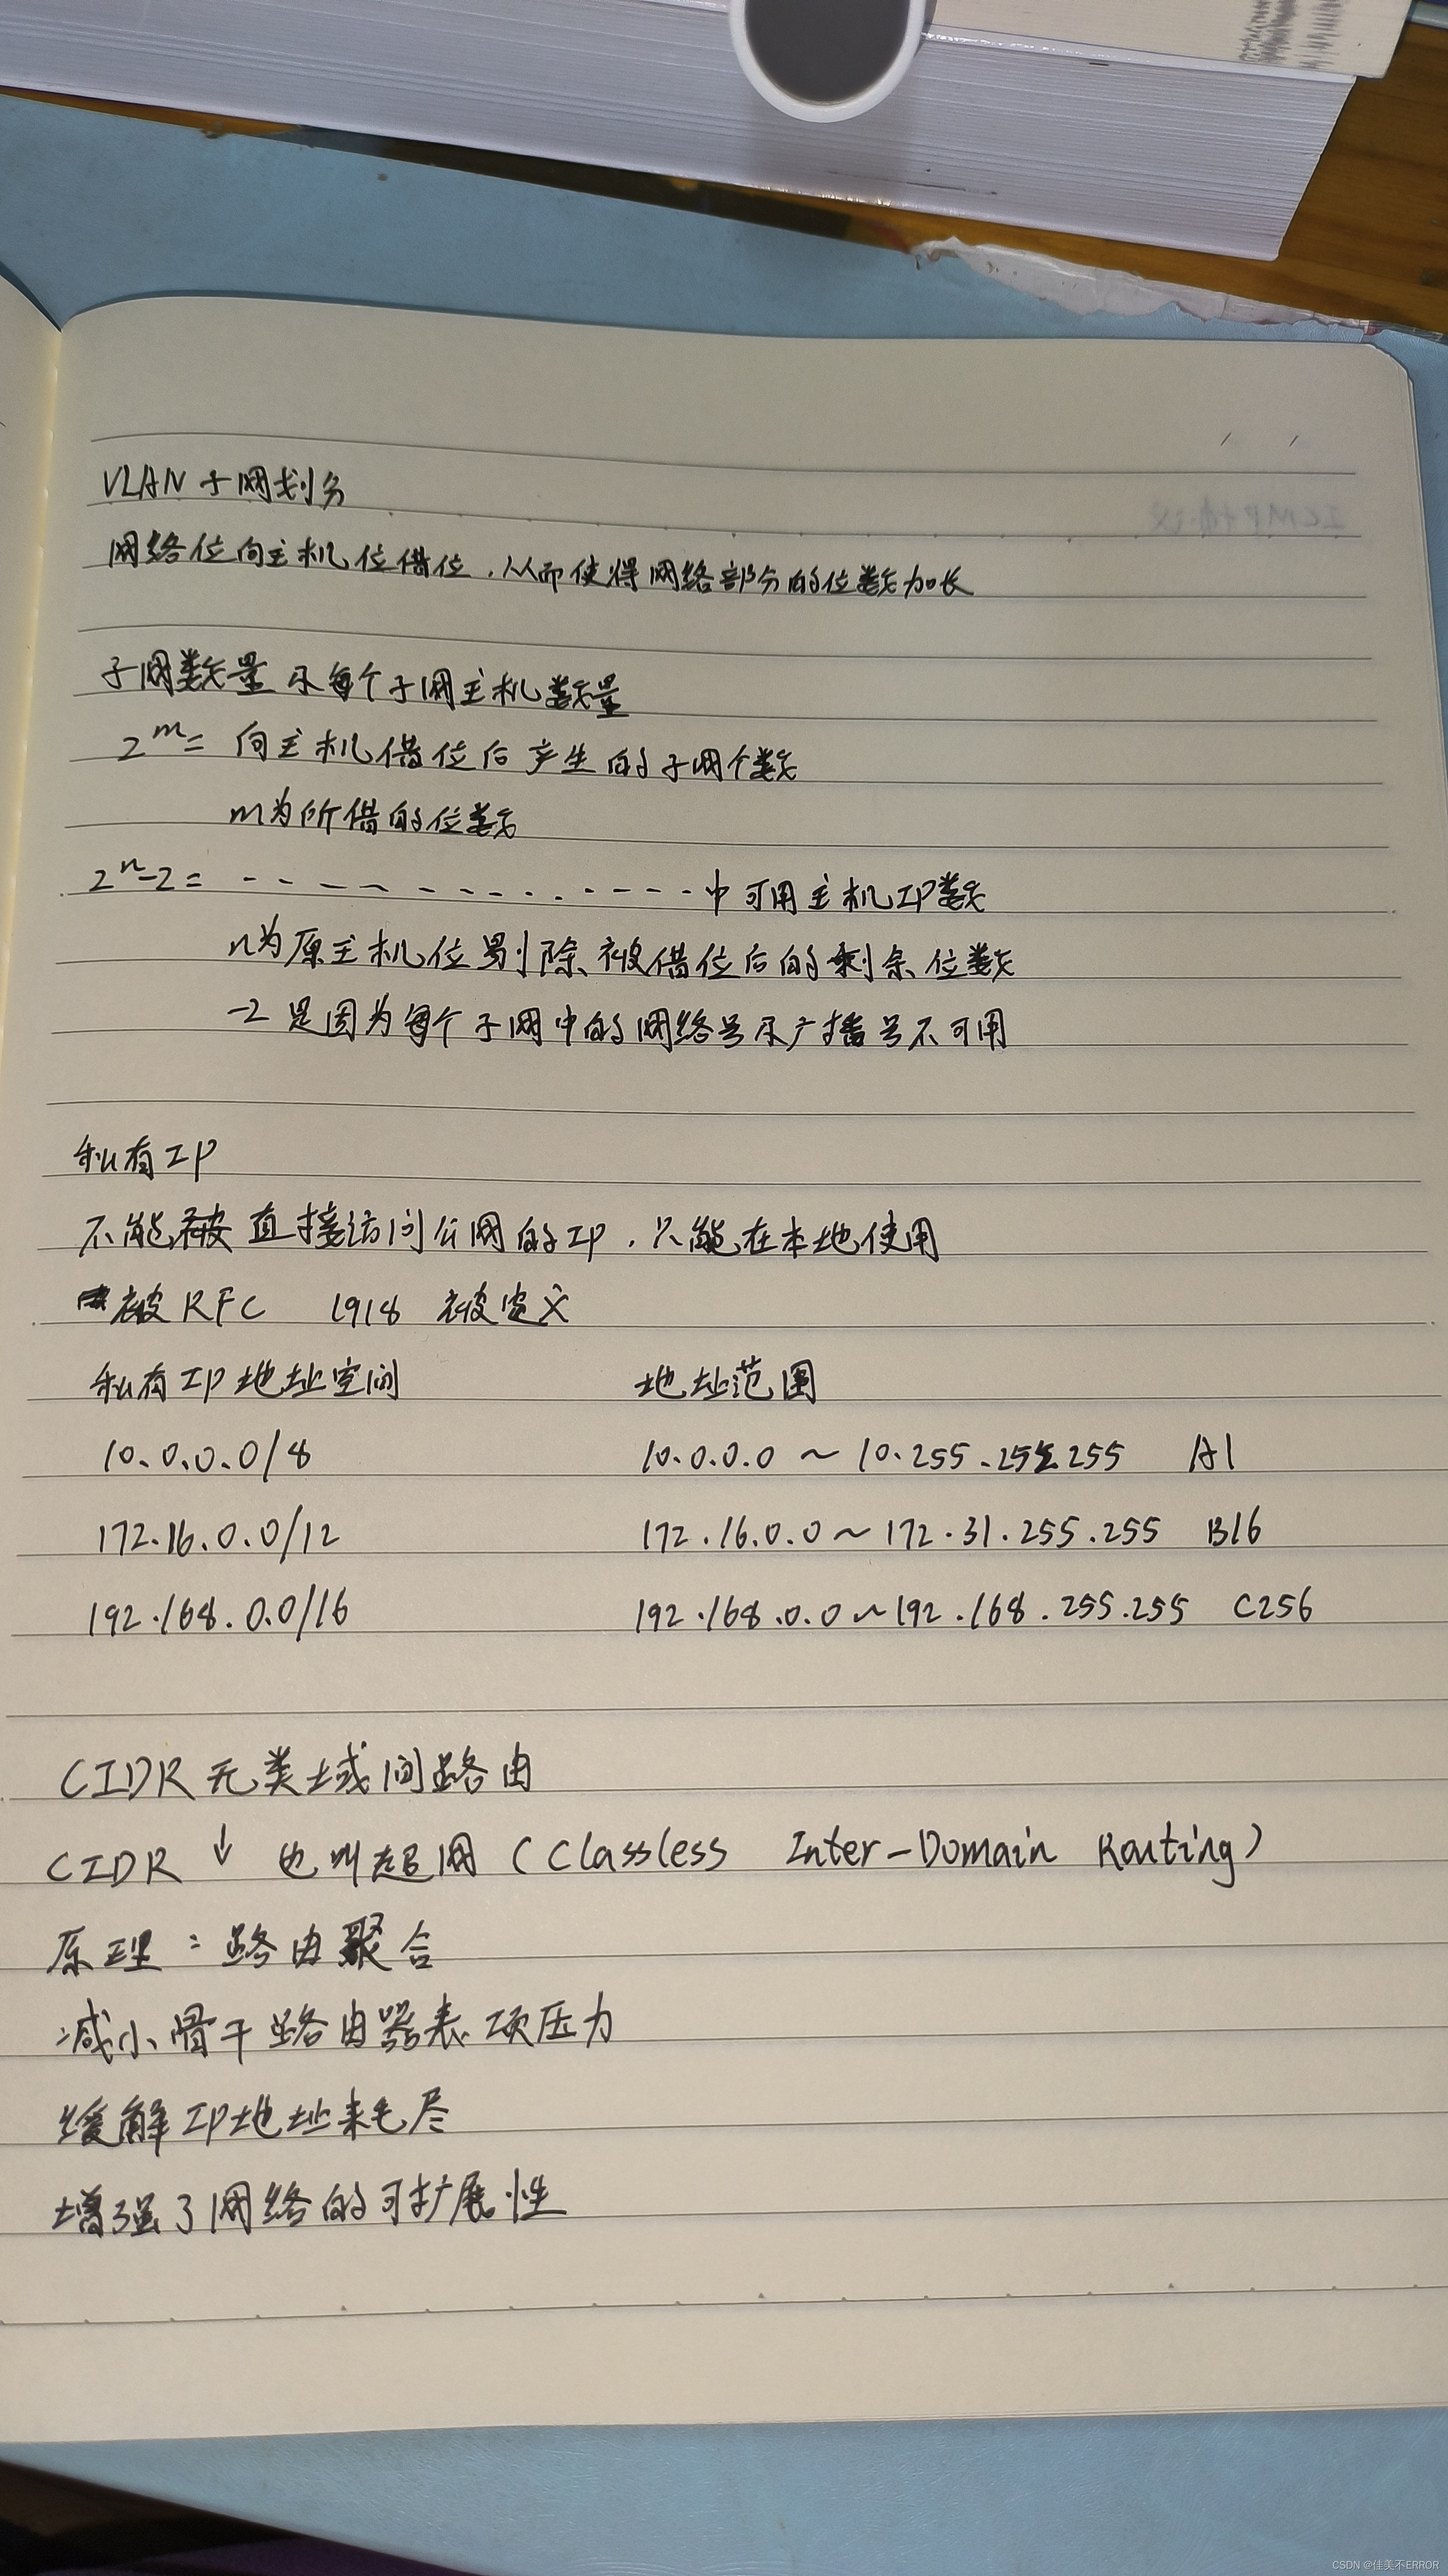 VLAN 子网划分
网络位向主机位借位，从而使得网络部分的位数加长
子网数量 及每个子网主机数量
2^m= 向主机借位后产生的子网个数
m为所借的位数
2^n-2= - - - - - - - - - - - - - - 中可用主机IP数
n为原主机位剔除被借位后的剩余位数
-2 是因为每个子网中的网络号及广播号不可用
私有IP
不能被直接访问公网的IP，只能在本地使用
被RFC 1918 被定义
私有IP地址空间 地址范围
10.0.0.0/8 10.0.0.0 ~ 10.255.255.255 A1
172.16.0.0/12 172.16.0.0 ~ 172.31.255.255 B16
192.168.0.0/16 192.168.0.0 ~ 192.168.255.255 C256
CIDR 无类域间路由
CIDR ↓ 也叫超网 (Classless Inter-Domain Routing)
原理：路由聚合
减小骨干路由器表项压力
缓解IP地址耗尽
增强了网络的可扩展性
CSDN @佳美不ERROR